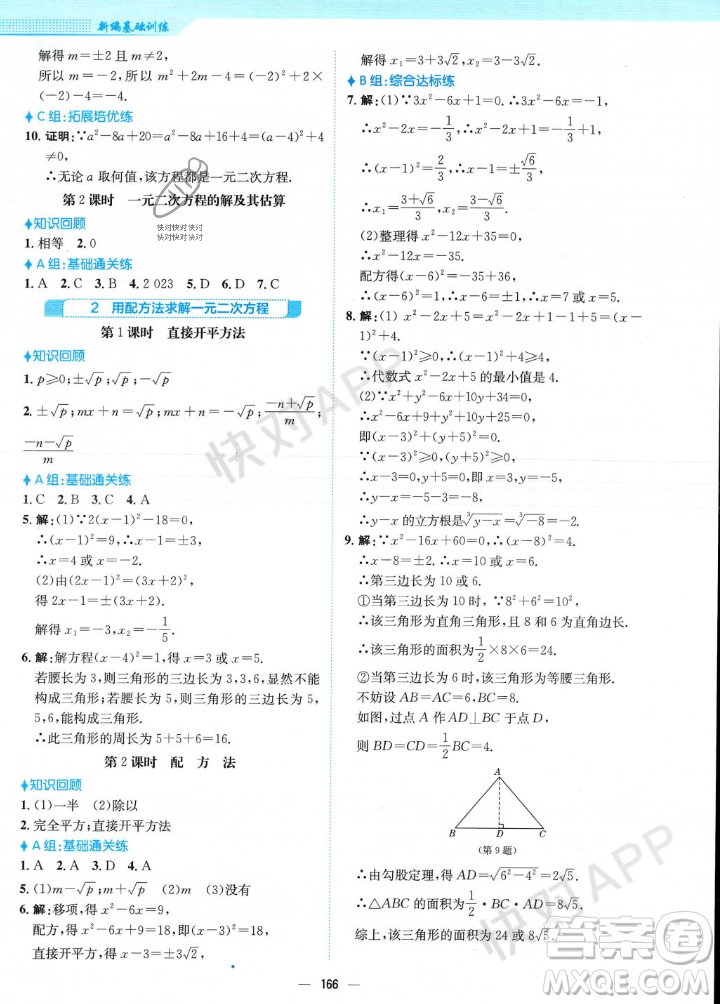 新编基础训练
解得 m=±2 且 m≠2,
解得 m=-2. ∴m²+2m-4=(-2)²+2×
(-2)-4=-4.
C组:拓展培优练
10. 证明:∵a²-8a+20=a²-8a+16+4=(a-4)²+4
≠0,
∴无论 a 取何值,该方程都是一元二次方程.
第2课时 一元二次方程的解及其估算
知识回顾
1. 相等 2. 0
A组:基础通关练
1. A 2. C 3. B 4. 2 023 5. D 6. D 7. C
2 用配方法求解一元二次方程
第1课时 直接开平方法
知识回顾
1. p≥0;±√p;-√p
2. ±√p;mx+n=-√p;(-n+√p)/m;
(-n-√p)/m
A组:基础通关练
1. C 2. B 3. C 4. A
5. 解:(1)∵2(x-1)²-18=0,
∴(x-1)²=9,∴x-1=±3,
∴x=4 或 x=-2.
(2)由(2x-1)²=(3x+2)²,
得 2x-1=±(3x+2).
解得 x₁=-3,x₂=-1/5.
6. 解:解方程(x-4)²=1,得 x=3 或 x=5.
若腰长为 3,则三角形的三边长为 3,3,5,显然能
构成三角形;若腰长为 5,则三角形的三边长为
5,5,6,能构成三角形.
∴此三角形的周长为 5+5+6=16.
第2课时 配 方 法
知识回顾
1. (1)一半 (2)除以
2. 完全平方;直接开平方法
A组:基础通关练
1. A 2. A 3. D 4. A
5. (1)m-√p;m+√p (3)没有
6. 解:移项,得 x²-6x=9,
配方,得 x²-6x+9=18,即(x-3)²=18,
直接开平方,得 x-3=±3√2,
解得 x₁=3+3√2,x₂=3-3√2.
B组:综合达标练
7. 解:(1)∵3x²-6x+1=0,∴3x²-6x=-1,
∴x²-2x=-1/3,∴x²-2x+1=-1/3+1,
∴(x-1)²=2/3,∴x-1=±√6/3,
∴x₁=(3+√6)/3,x₂=(3-√6)/3.
(2)整理得 x²-6x+44=0,
∴x²-12x=-44.
配方得(x-6)²=-35+36,
∴x²-12x+36=1,
∴x₁=7,x₂=5.
8. 解:(1)∵x²-2x+5=x²-2x+1+4=
(x-1)²+4,
∵(x-1)²≥0,∴(x-1)²+4≥4,
∴代数式 x²-2x+5 的最小值是 4.
(2)∵x²-6x+y²+10y+34=0,
∴x²-6x+9+y²+10y+25=0,
即(x-3)²+(y+5)²=0.
∵(x-3)²≥0,(y+5)²≥0,
∴x-3=0,y+5=0,即 x=3,y=-5,
∴y-x=-5-3=-8,
∴y-x 的立方根是∛(y-x)=∛(-8)=-2.
9. 解:∵x²-16x+60=0,∴x=10 或 x=6.
∴第三边长为 10 或 6.
①当第三边长为 10 时,∵8²+6²=10²,
∴该三角形为直角三角形,
∴该三角形的面积为 1/2×8×6=24.
②当第三边长为 6 时,该三角形为等腰三角形.
不妨设 AB=AC=6,BC=8.
如图,过点 A 作 AD⊥BC 于点 D,
则 BD=CD=1/2BC=4.
A
B D C
(第9题)
∴由勾股定理,得 AD=√(6²-4²)=2√5.
∴△ABC 的面积为 1/2·BC·AD=8√5.
综上,该三角形的面积为 24 或 8√5.
166
快对快对
快对快对
快对APP
快对APP
答案圈
MXQE.COM